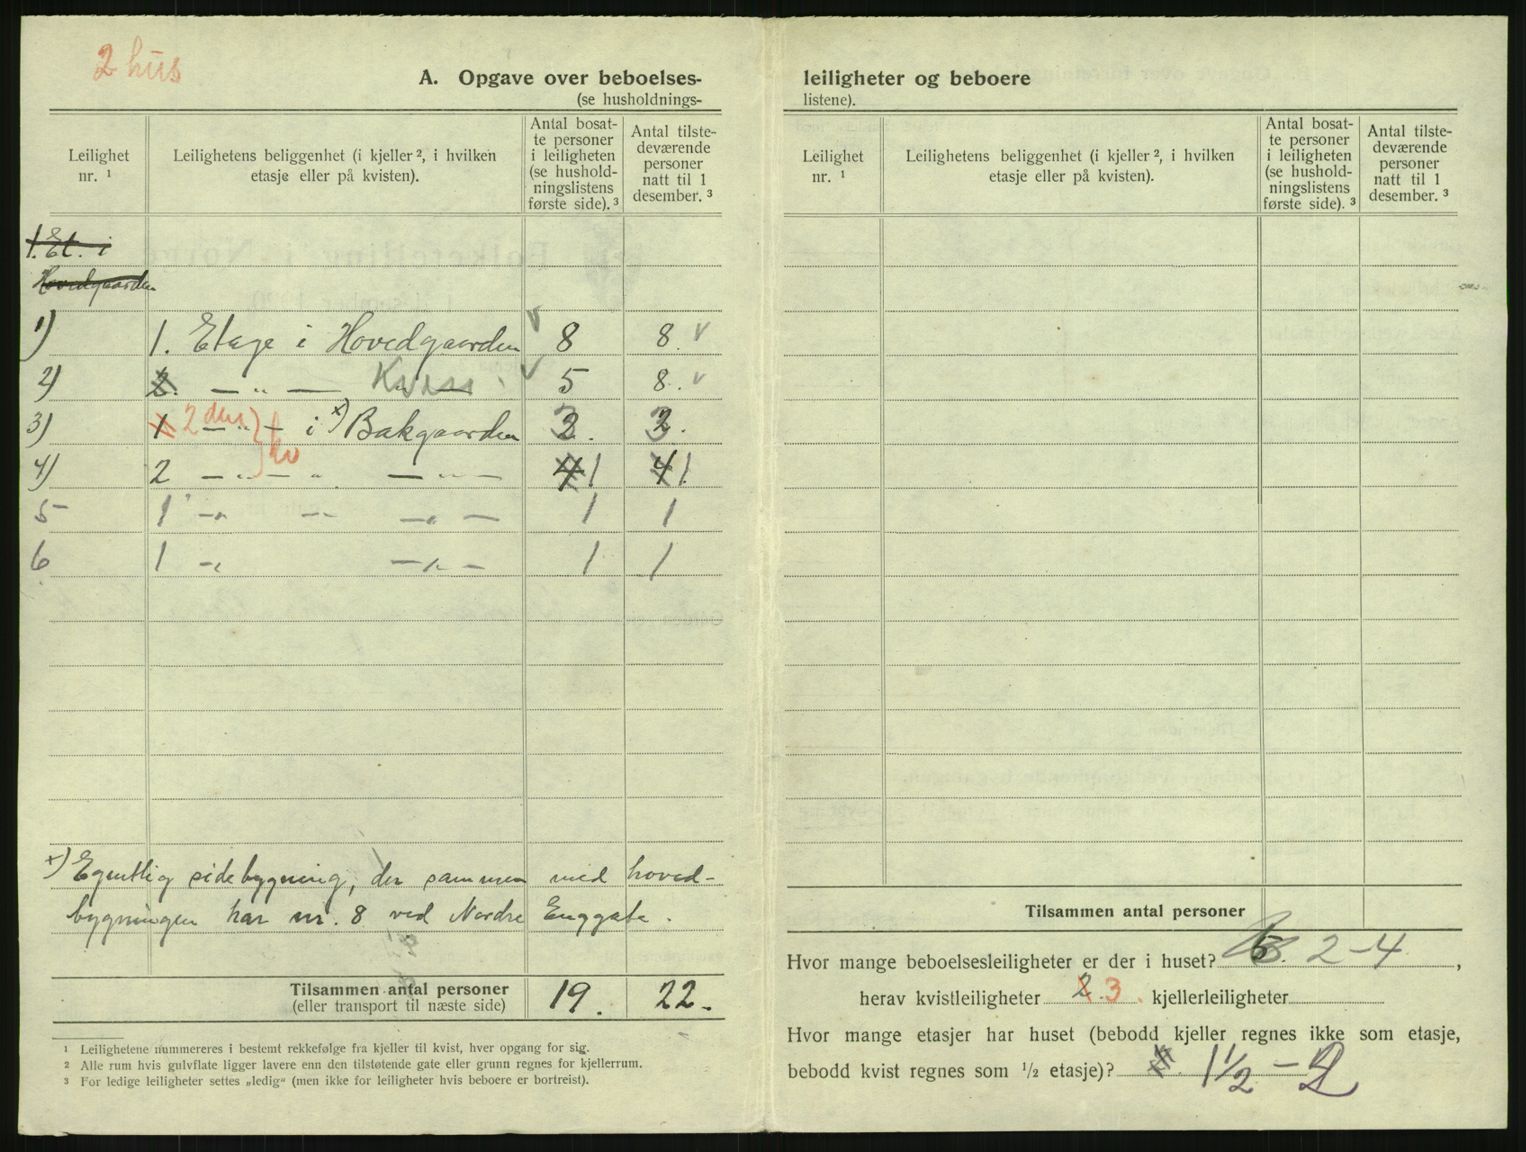 2 hus
A. Opgave over beboelses-
(se husholdnings-
Leilighet nr. ¹
Leilighetens beliggenhet (i kjeller ², i hvilken etasje eller på kvisten).
Antal bosat-
te personer
i leiligheten
(se hushold-
ningslistens
første side). ³
Antal tilste-
deværende
personer
natt til 1
desember. ³
1. Et. i
Hovedgaarden
1) 1. Etage i Hovedgaarden 8 8.
2) 2. — „ — Kvist 5 8.
3) 1 2den — „ — i x) Bakgaarden 2. 2.
4) 2 — „ — „ — „ — 4 1 4 1.
5 1 — „ — „ — 1 1
6 1 — „ — „ — 1 1
x) Egentlig sidebygning, der sammen med hoved-
bygningen har nr. 8 ved Nordre Enggate.
Tilsammen antal personer 19. 22.
(eller transport til næste side)
¹ Leilighetene nummereres i bestemt rekkefølge fra kjeller til kvist, hver opgang for sig.
² Alle rum hvis gulvflate ligger lavere enn den tilstøtende gate eller grunn regnes for kjellerrum.
³ For ledige leiligheter settes „ledig“ (men ikke for leiligheter hvis beboere er bortreist).
leiligheter og beboere
listene).
Leilighet nr. ¹
Leilighetens beliggenhet (i kjeller ², i hvilken etasje eller på kvisten).
Antal bosat-
te personer
i leiligheten
(se hushold-
ningslistens
første side). ³
Antal tilste-
deværende
personer
natt til 1
desember. ³
Tilsammen antal personer
Hvor mange beboelsesleiligheter er der i huset? 2-4,
herav kvistleiligheter 2. 3. kjellerleiligheter
Hvor mange etasjer har huset (bebodd kjeller regnes ikke som etasje,
bebodd kvist regnes som ½ etasje)? 1½ - 2